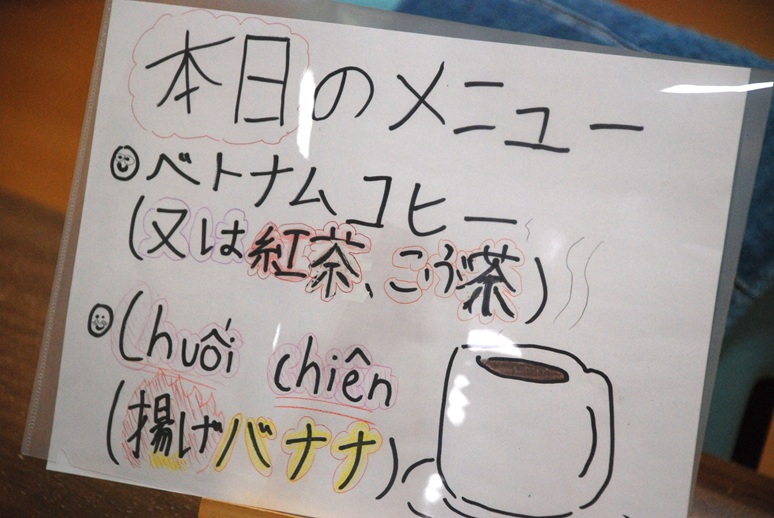 本日のメニュー
ベトナムコヒー
(又は紅茶、こうぶ茶)
Chuối chiên
(揚げバナナ)